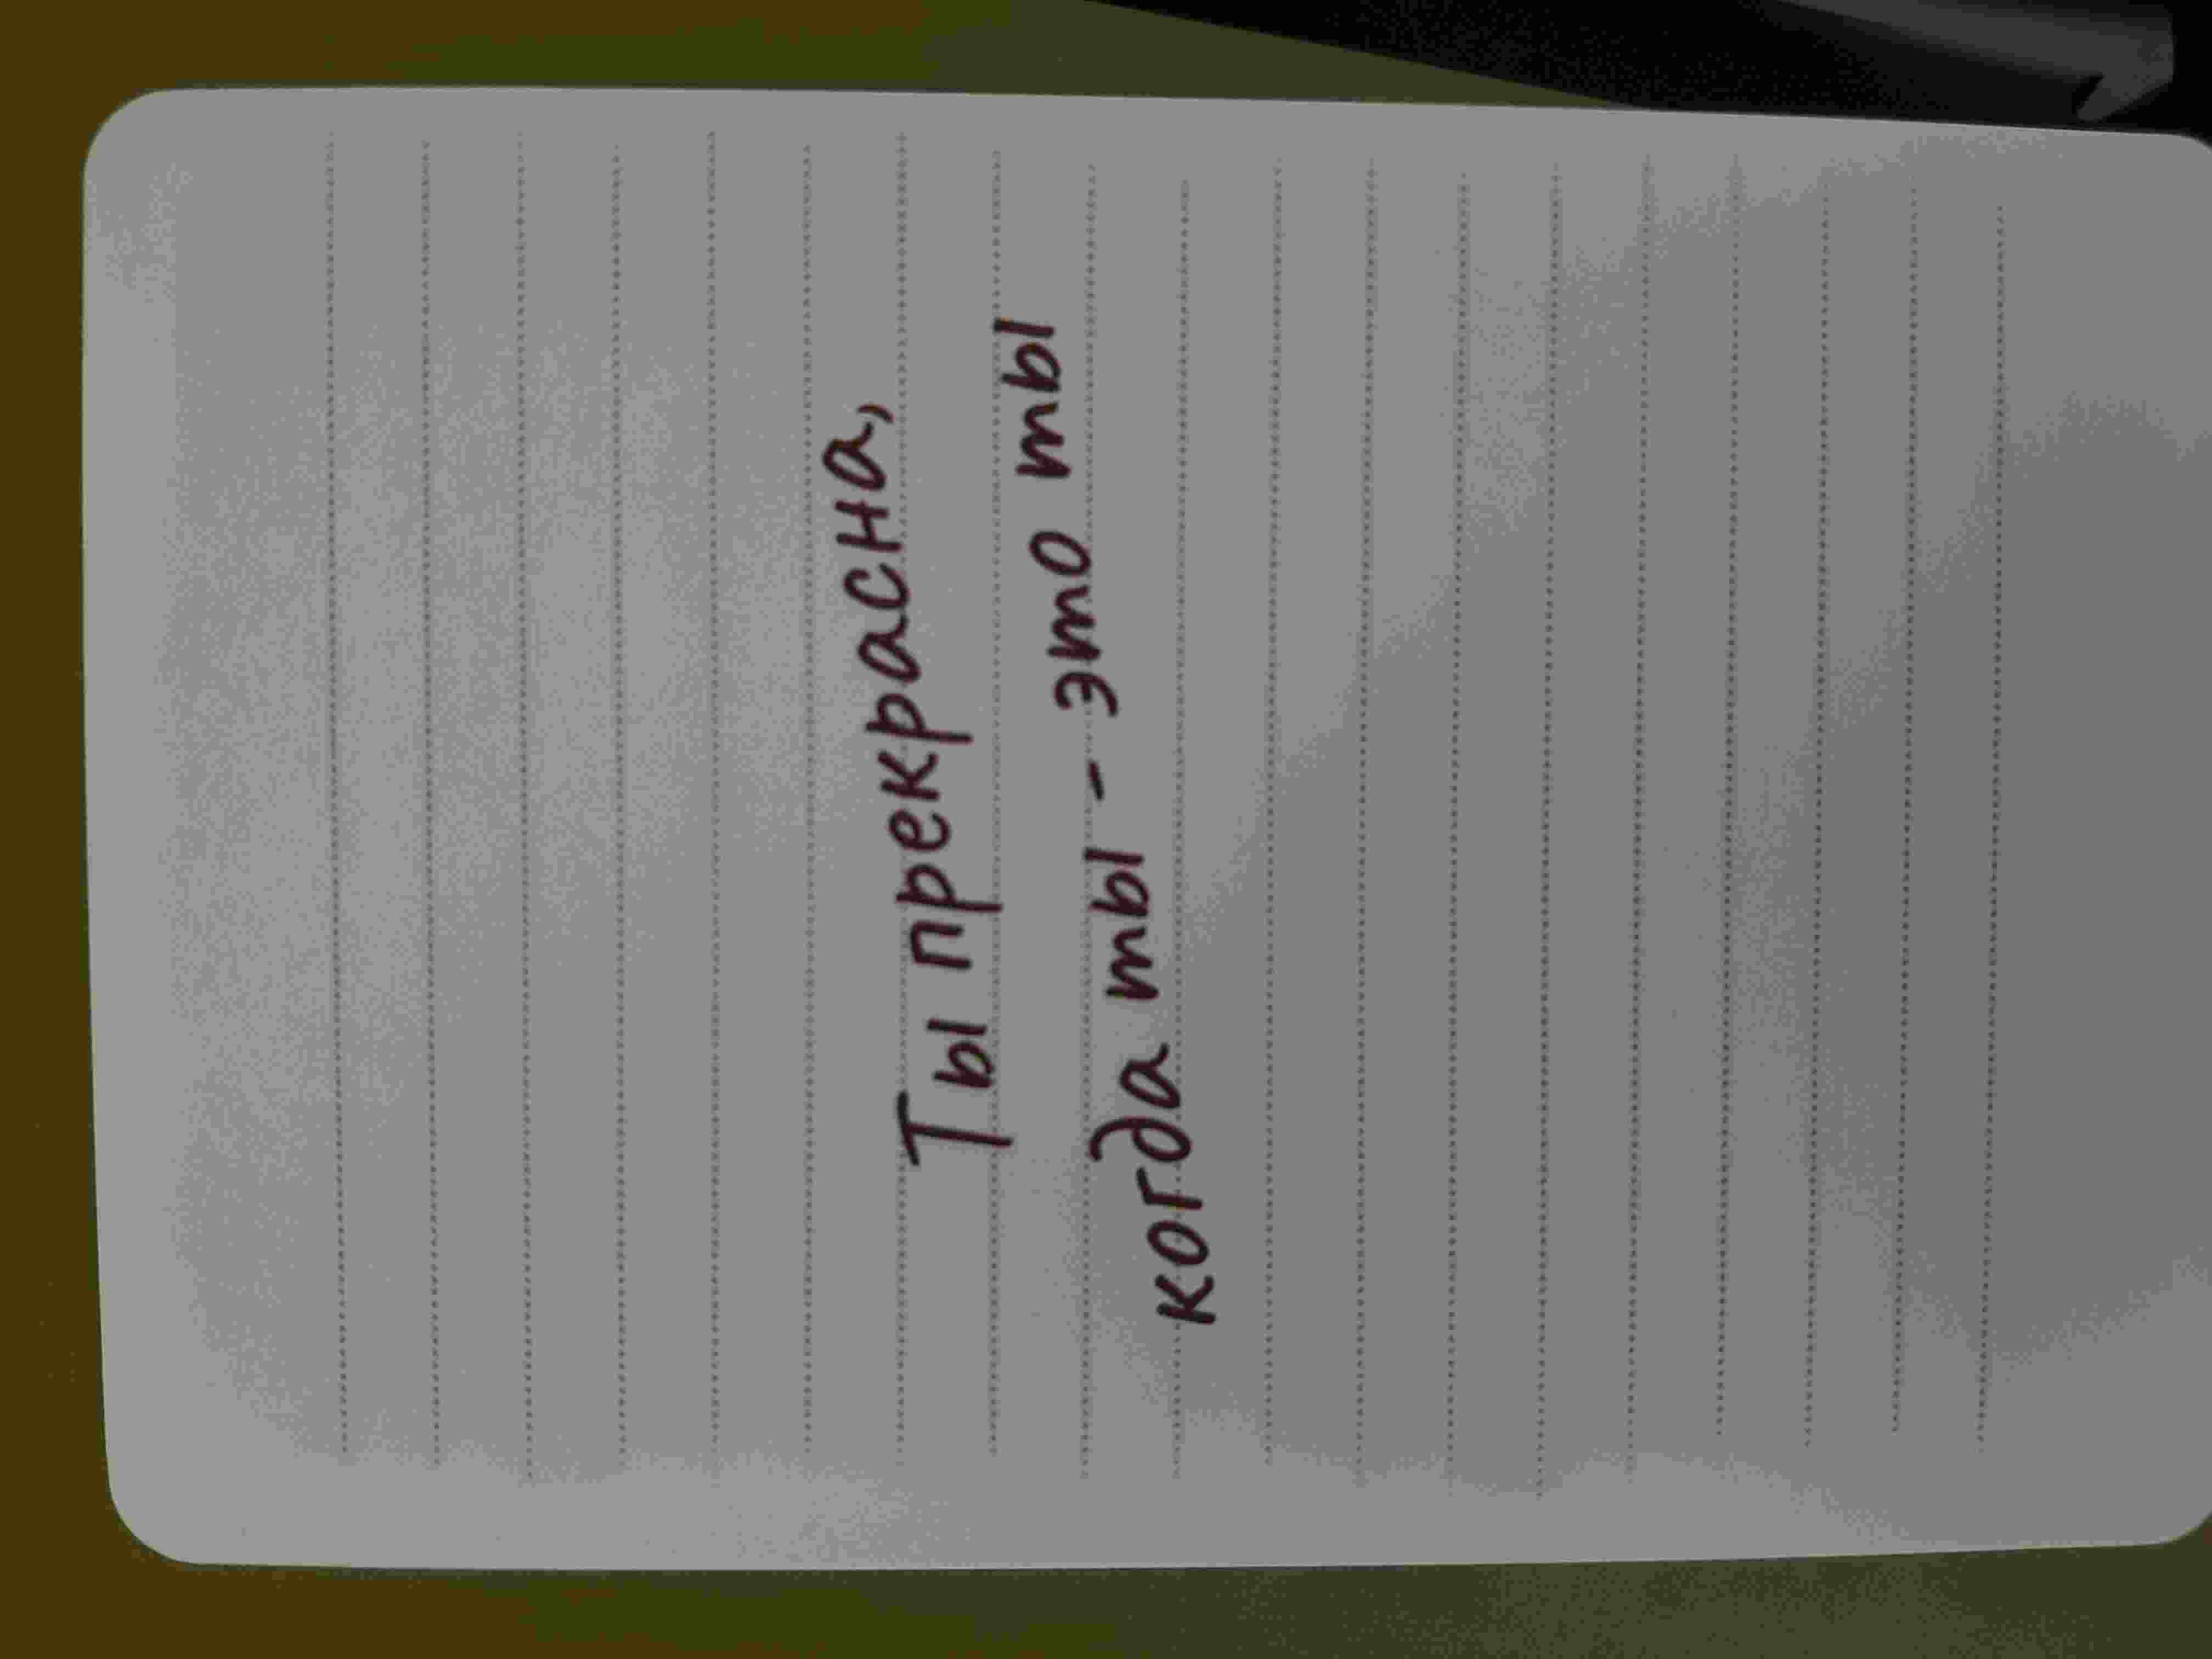 Ты прекрасна,
когда ты - это ты